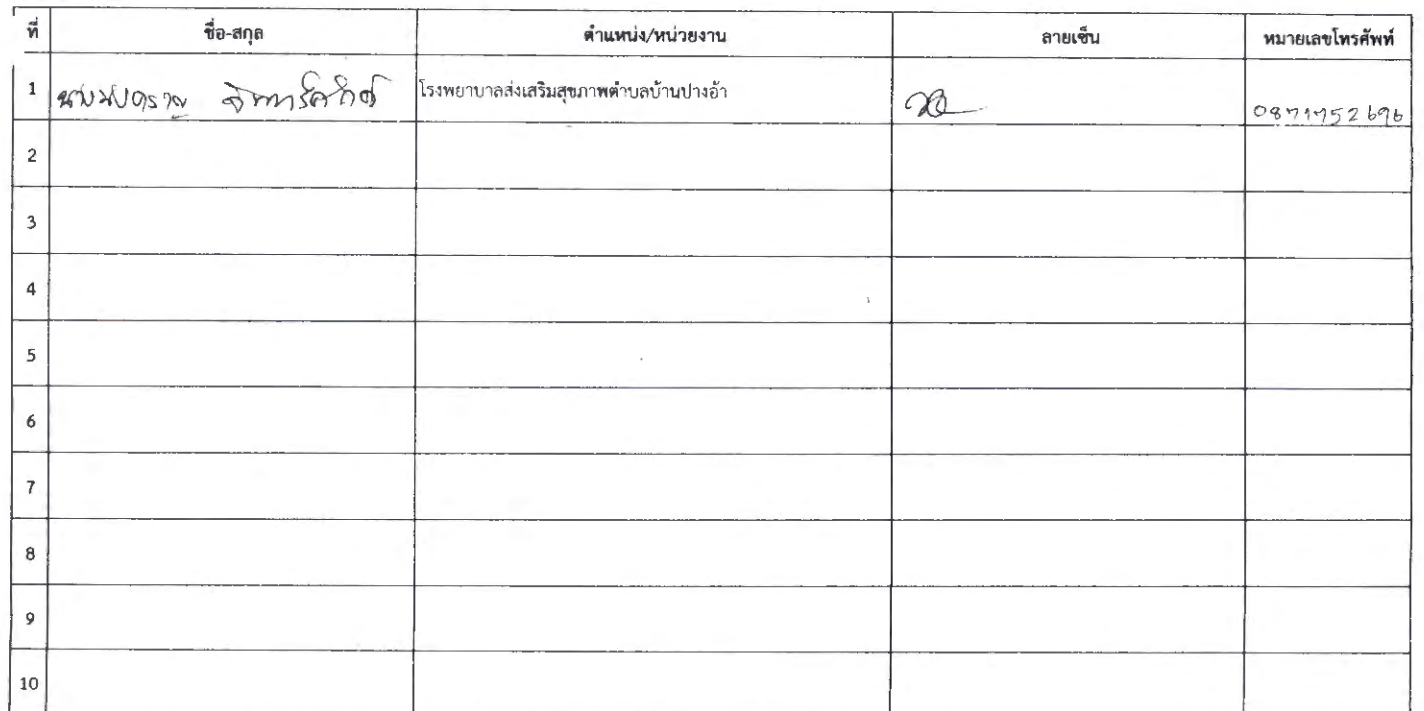 ที่ ชื่อ-สกุล ตำแหน่ง/หน่วยงาน ลายเซ็น หมายเลขโทรศัพท์
1 โรงพยาบาลส่งเสริมสุขภาพตำบลบ้านปางอ้า 0871752696
2
3
4
5
6
7
8
9
10